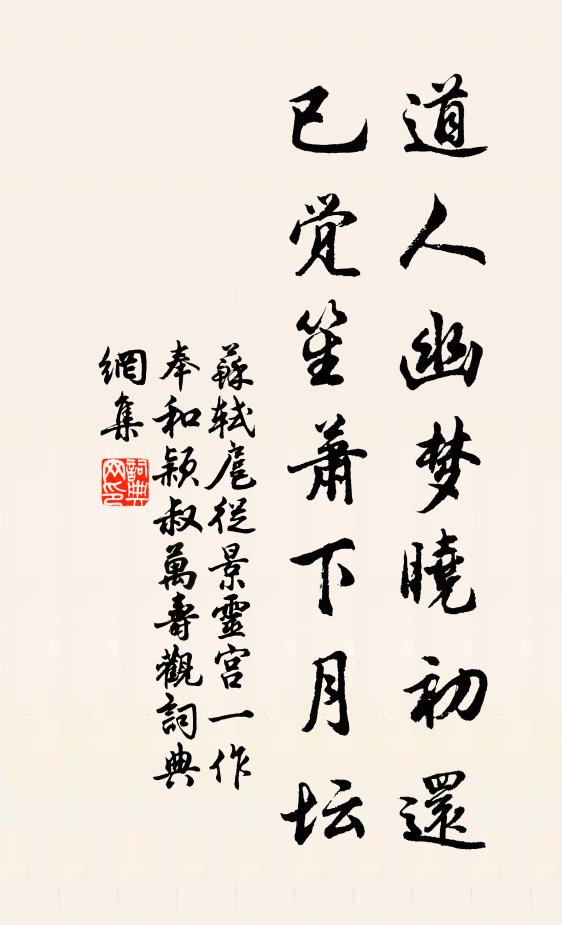 道人幽梦曉初還
已觉笙萧下月坛
蘇軾扈從景靈宮一作
奉和潁叔萬壽觀詞典
網集
詞典
网印